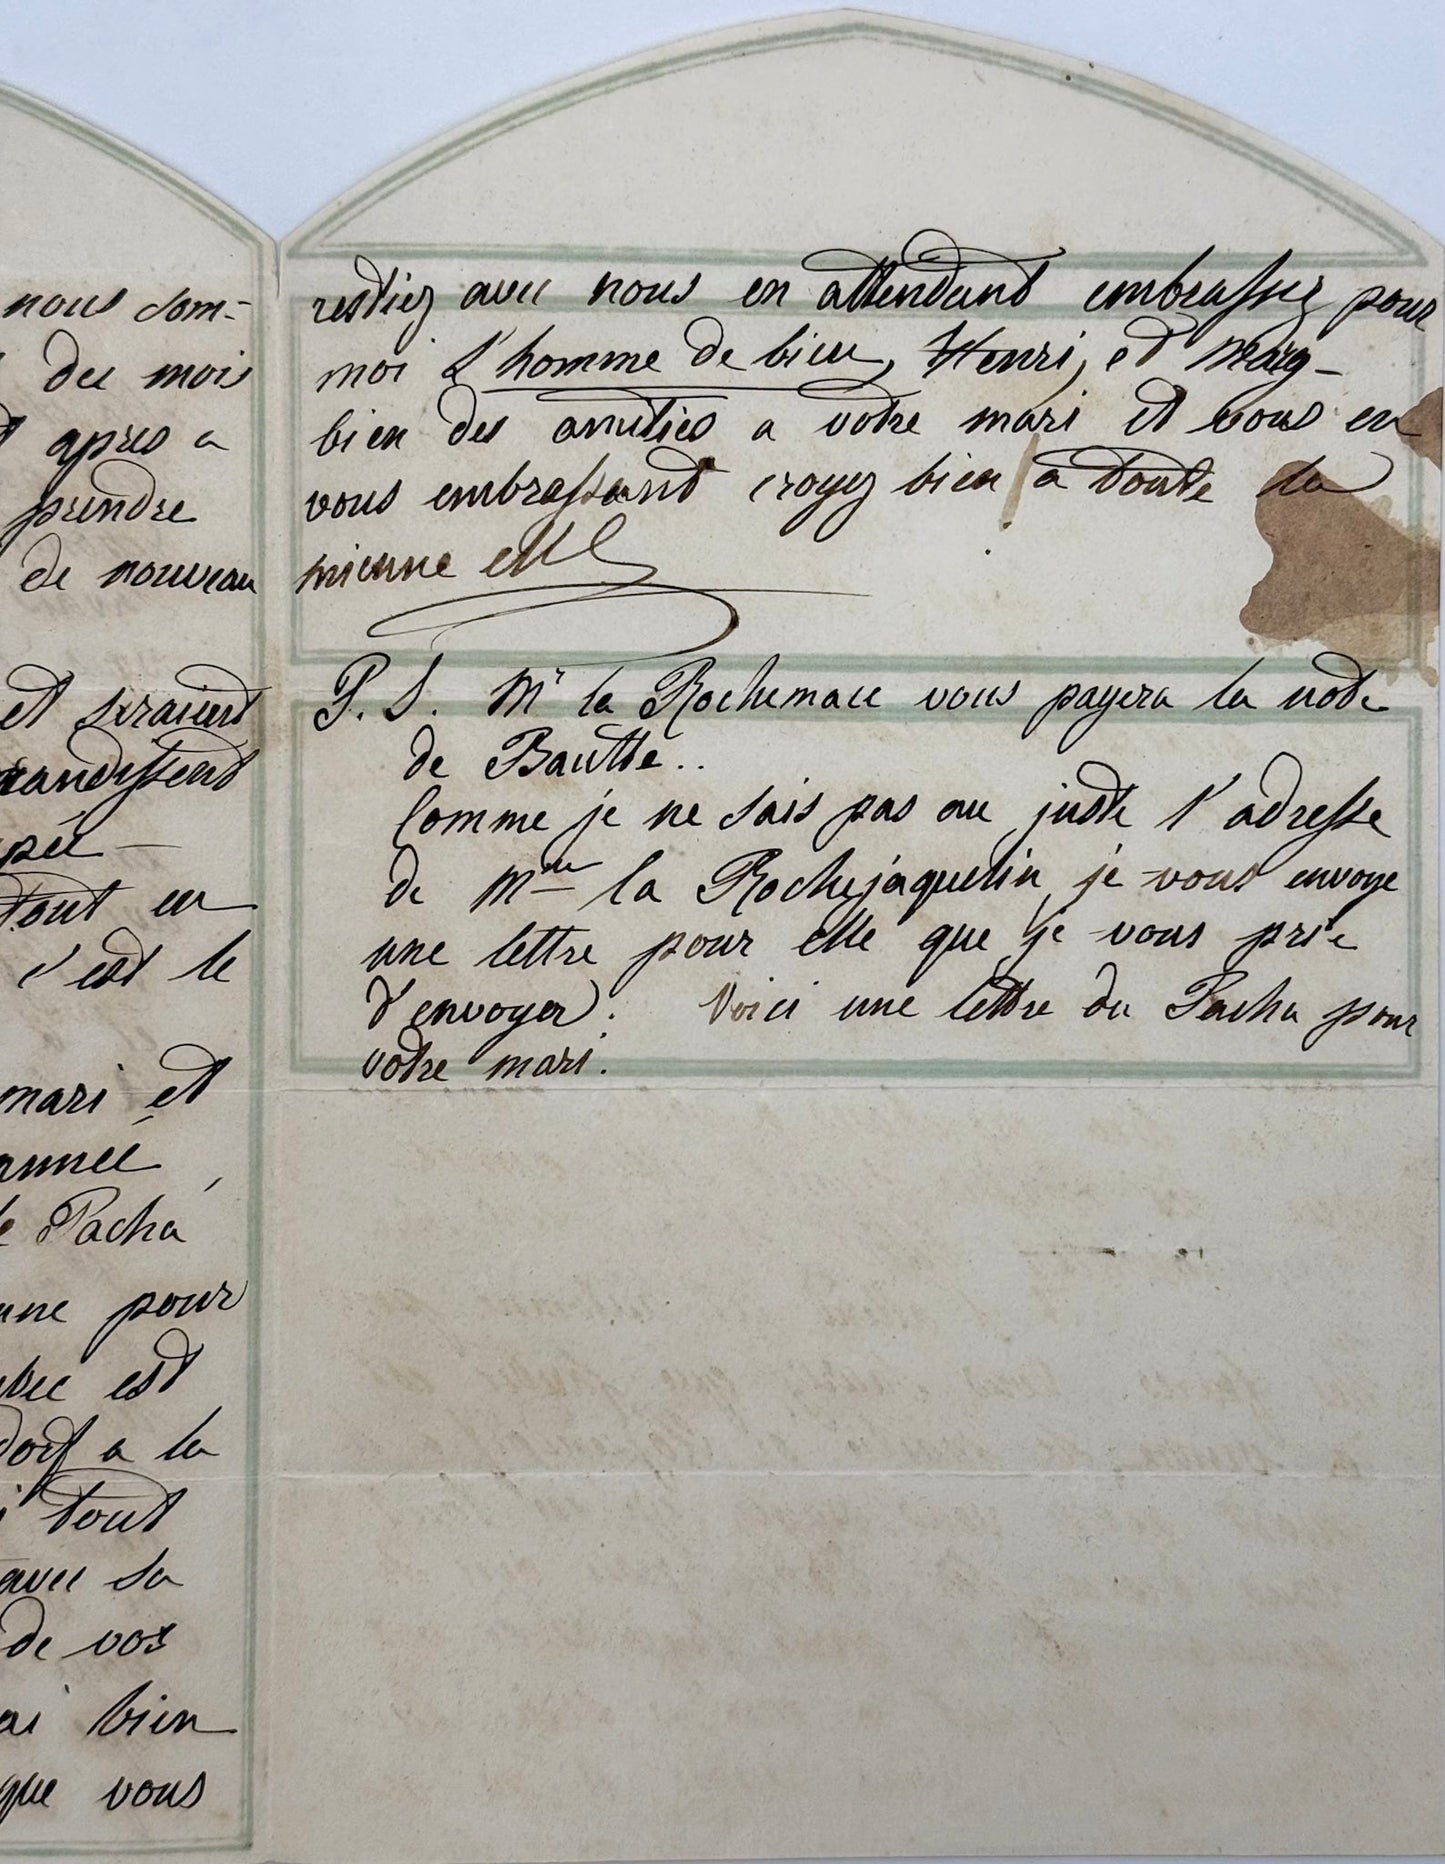 nous som-
des mois
apres a
prendre
de nouveau
et seraient
randissent
tout en
c'est le
mari et
année,
Pacha
une pour
est
dorf a la
tout
avec sa
de vos
ai bien
que vous
restiez avec nous en attendant embrassez pour
moi l'homme de bien, Henri, et
bien des amitiés a votre mari et vous en
vous embrassant croyez bien a toute la
mienne
P. S. Mr la Rochemace vous payera la note
de Bautte..
Comme je ne sais pas au juste l'adresse
de Mme la Rochejaquelin je vous envoye
une lettre pour elle que je vous prie
d'envoyer. Voici une lettre du Pacha pour
votre mari.